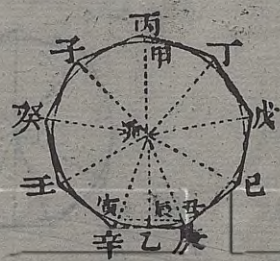 丙
甲
子
丁
癸
戊
壬
己
寅
辰
丑
辛
乙
庚